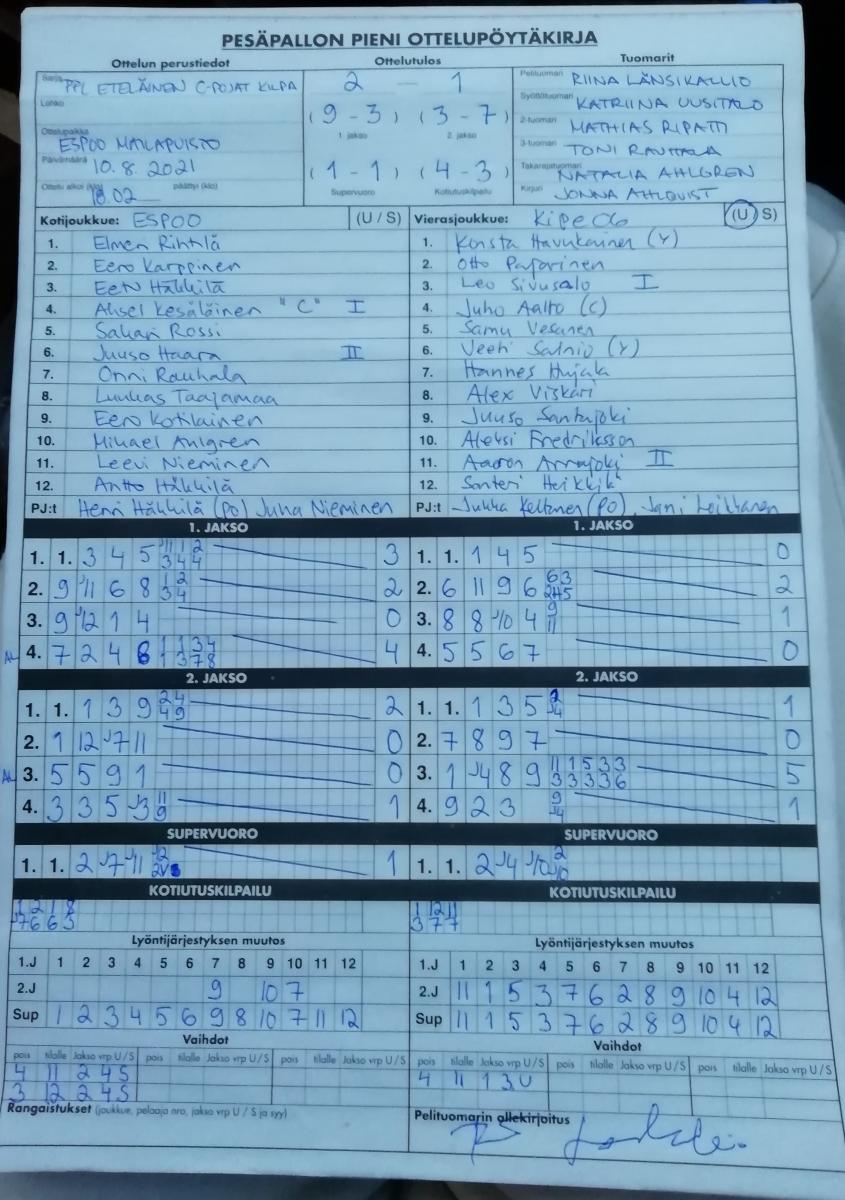 PESÄPALLON PIENI OTTELUPÖYTÄKIRJA
Ottelun perustiedot Ottelutulos Tuomarit
Sarja PPL ETELÄINEN C-POJAT KILPA 2 — 1 Pelituomari RIINA LÄNSIKALLIO
Lohko (9 - 3) (3 - 7) Syöttötuomari KATRIINA UUSITALO
1. jakso 2. jakso 2-tuomari MATHIAS RIPATTI
Ottelupaikka ESPOO MAILAPUISTO 3-tuomari TONI RAUTTALA
Päivämäärä 10.8.2021 (1 - 1) (4 - 3) Takarajatuomari NATALIA AHLGREN
Ottelu alkoi (klo) 18.02 päättyi (klo) Supervuoro Kotiutuskilpailu Kirjuri JONNA AHLQVIST
Kotijoukkue: ESPOO (U / S) Vierasjoukkue: KiPe 06 (U / S)
1. Elmeri Rihtilä 1. Konsta Havukainen (Y)
2. Eero Karppinen 2. Otto Pajarinen
3. Eetu Häkkilä 3. Leo Sivusalo I
4. Aksel Kesäläinen "C" I 4. Juho Aalto (C)
5. Sakari Rossi 5. Samu Vesanen
6. Juuso Haara II 6. Veeti Salnio (Y)
7. Onni Rauhala 7. Hannes Hujala
8. Luukas Taajamaa 8. Alex Viskari
9. Eero Kotilainen 9. Juuso Santajoki
10. Mikael Ahlgren 10. Aleksi Fredriksson
11. Leevi Nieminen 11. Aaron Arrajoki II
12. Antto Häkkilä 12. Santeri
PJ:t Henri Häkkilä (PO) Juha Nieminen PJ:t Jukka Keltanen (PO), Jani Leikkanen
1. JAKSO 1. JAKSO
1. 1. 3 4 5 3 1. 1. 1 4 5 0
2. 9 11 6 8 2 2. 6 11 9 6 2
3. 9 12 1 4 0 3. 8 8 10 4 9 11 1
AL 4. 7 2 4 6 1 1 3 4 1 3 7 8 4 4. 5 5 6 7 0
2. JAKSO 2. JAKSO
1. 1. 1 3 9 2 4 4 9 2 1. 1. 1 3 5 2 4 1
2. 1 12 7 11 0 2. 7 8 9 7 0
AL 3. 5 5 9 1 0 3. 1 4 8 9 11 1 5 3 3 3 3 3 3 6 5
4. 3 3 5 3 11 9 1 4. 9 2 3 9 4 1
SUPERVUORO SUPERVUORO
1. 1. 2 7 11 1 1. 1. 2 4 10 2 10
KOTIUTUSKILPAILU KOTIUTUSKILPAILU
1 2 1 8 1 12 11
7 6 6 3 3 7 7
Lyöntijärjestyksen muutos Lyöntijärjestyksen muutos
1.J 1 2 3 4 5 6 7 8 9 10 11 12 1.J 1 2 3 4 5 6 7 8 9 10 11 12
2.J 9 10 7 2.J 11 1 5 3 7 6 2 8 9 10 4 12
Sup 1 2 3 4 5 6 9 8 10 7 11 12 Sup 11 1 5 3 7 6 2 8 9 10 4 12
Vaihdot Vaihdot
pois tilalle Jakso vrp U / S pois tilalle Jakso vrp U / S pois tilalle Jakso vrp U / S pois tilalle Jakso vrp U / S pois tilalle Jakso vrp U / S pois tilalle Jakso vrp U / S
4 11 2 4 S 4 11 1 3 U
3 12 2 4 S
Rangaistukset (joukkue, pelaaja nro, jakso vrp U / S ja syy) Pelituomarin allekirjoitus